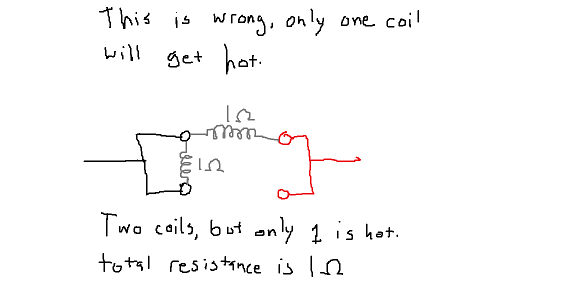 This is wrong, only one coil
will get hot.
1Ω
1Ω
Two coils, but only 1 is hot.
total resistance is 1Ω